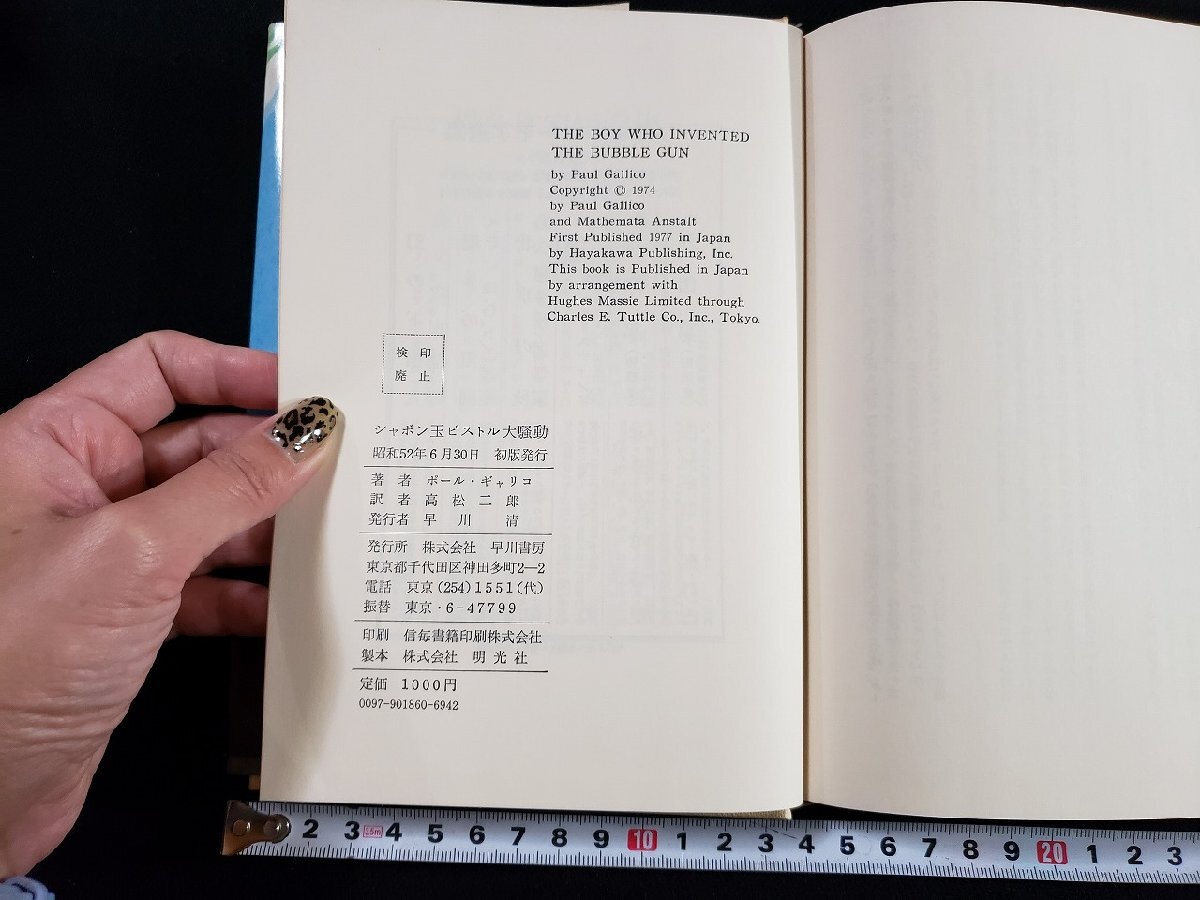 THE BOY WHO INVENTED
THE BUBBLE GUN
by Paul Gallico
Copyright © 1974
by Paul Gallico
and Mathemata Anstalt
First Published 1977 in Japan
by Hayakawa Publishing, Inc.
This book is Published in Japan
by arrangement with
Hughes Massie Limited through
Charles E. Tuttle Co., Inc., Tokyo.
検印
廃止
シャボン玉ピストル大騒動
昭和52年6月30日 初版発行
著者 ポール・ギャリコ
訳者 高松二郎
発行者 早川 清
発行所 株式会社 早川書房
東京都千代田区神田多町2—2
電話 東京(254)1551(代)
振替 東京・6-47799
印刷 信毎書籍印刷株式会社
製本 株式会社 明光社
定価 1000円
0097-901860-6942
2 3 1.5m 4 5 6 7 8 9 10 1 2 3 4 5 6 7 8 9 20 1 2 3